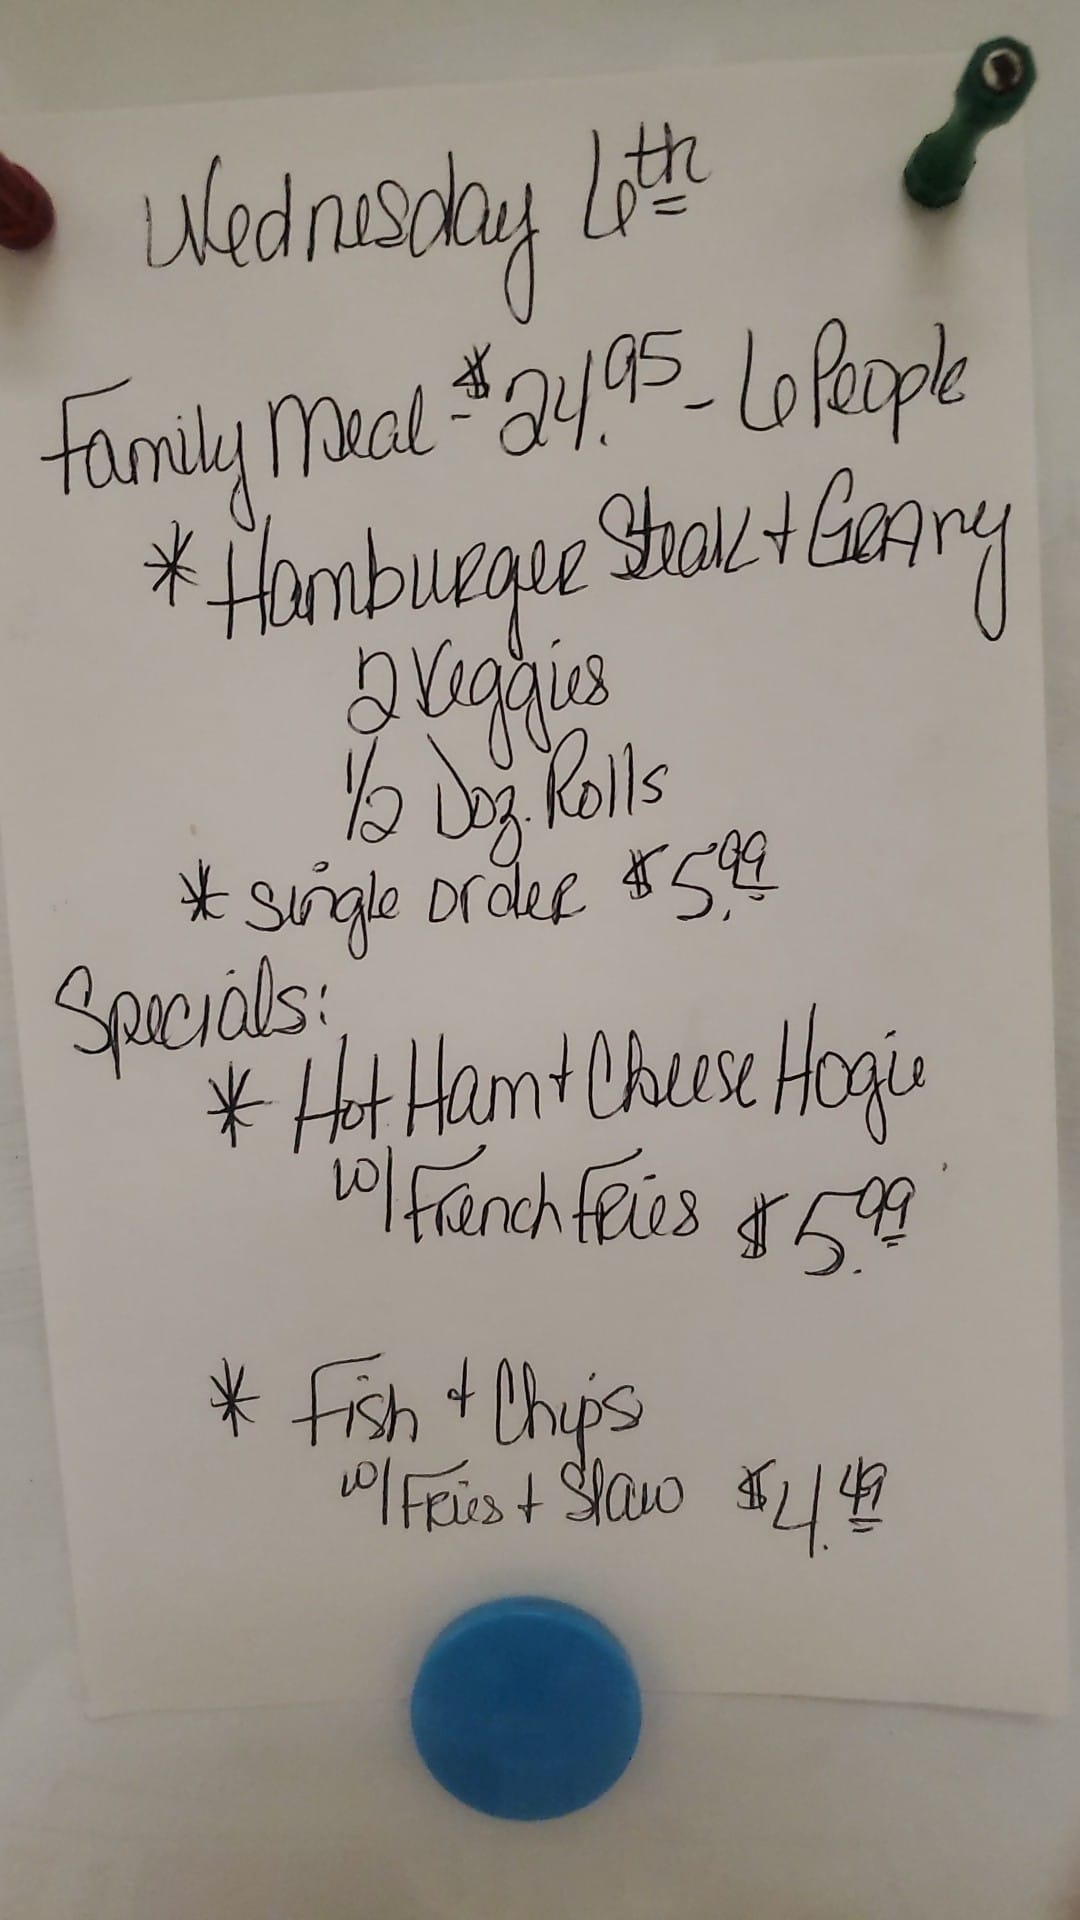 Wednesday 6th
Family Meal - $24.95 - 6 People
* Hamburger Steak + Gravy
2 Veggies
1/2 Doz. Rolls
* Single order $5.99
Specials:
* Hot Ham + Cheese Hogie
w/ French Fries $5.99
* Fish + Chips
w/ Fries + Slaw $4.49